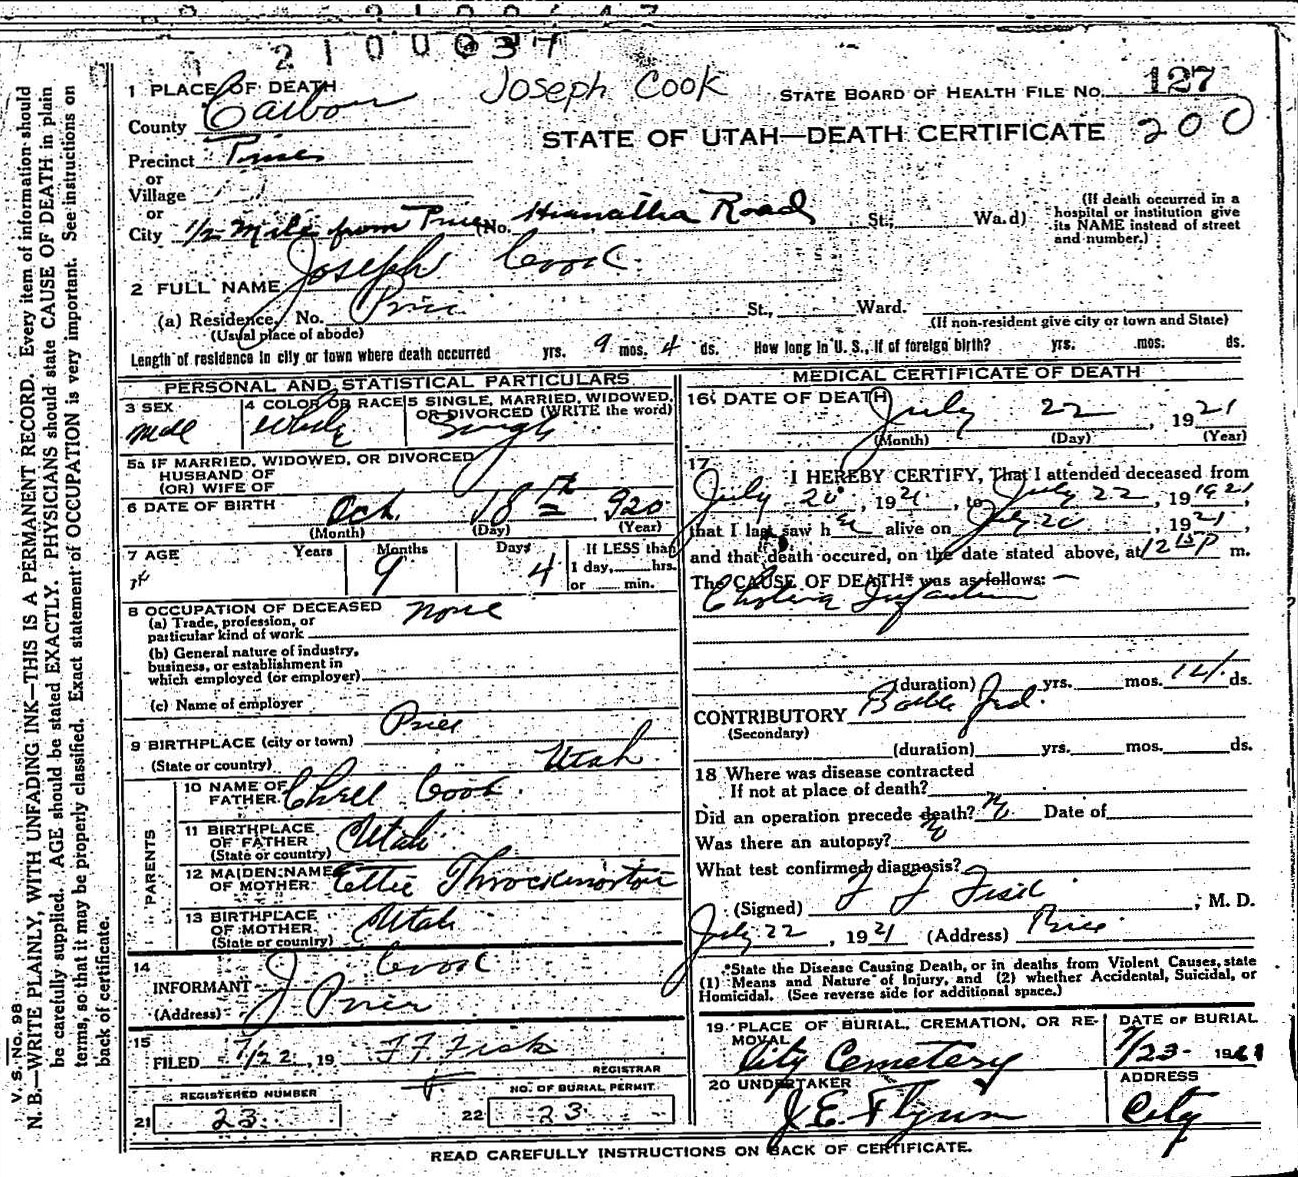 2100037
Joseph Cook
STATE BOARD OF HEALTH FILE NO. 127
STATE OF UTAH—DEATH CERTIFICATE 200
1 PLACE OF DEATH
County Carbon
Precinct Price
or
Village
or
City 1/2 Mile from Price (No. Hiawatha Road St., Ward)
(If death occurred in a hospital or institution give its NAME instead of street and number.)
2 FULL NAME Joseph Cook
(a) Residence, No. Price St., Ward.
(Usual place of abode) (If non-resident give city or town and State)
Length of residence in city or town where death occurred yrs. 9 mos. 4 ds. How long in U. S., if of foreign birth? yrs. mos. ds.
PERSONAL AND STATISTICAL PARTICULARS
3 SEX Male
4 COLOR OR RACE White
5 SINGLE, MARRIED, WIDOWED, OR DIVORCED (WRITE the word) Single
5a IF MARRIED, WIDOWED, OR DIVORCED
HUSBAND OF
(OR) WIFE OF
6 DATE OF BIRTH Oct. 18th 920
(Month) (Day) (Year)
7 AGE Years Months 9 Days 4
If LESS than 1 day, hrs. or min.
8 OCCUPATION OF DECEASED None
(a) Trade, profession, or particular kind of work
(b) General nature of industry, business, or establishment in which employed (or employer)
(c) Name of employer
9 BIRTHPLACE (city or town) Price
(State or country) Utah
PARENTS
10 NAME OF FATHER
Cook
11 BIRTHPLACE OF FATHER (State or country) Utah
12 MAIDEN NAME OF MOTHER Ettie Throckmorton
13 BIRTHPLACE OF MOTHER (State or country) Utah
14
INFORMANT J Cook
(Address) Price
15
FILED 7/22, 19 F F Fisk
REGISTRAR
REGISTERED NUMBER
21 23
NO. OF BURIAL PERMIT
22 23
MEDICAL CERTIFICATE OF DEATH
16 DATE OF DEATH July 22, 1921
(Month) (Day) (Year)
17
I HEREBY CERTIFY, That I attended deceased from
July 20, 1921, to July 22, 191921,
that I last saw h alive on July 20, 1921,
and that death occured, on the date stated above, at 12 15 P m.
The CAUSE OF DEATH* was as follows:
Cholera Infantum
(duration) yrs. mos. 14 ds.
CONTRIBUTORY Bottle Fed.
(Secondary)
(duration) yrs. mos. ds.
18 Where was disease contracted
If not at place of death?
Did an operation precede death? No Date of
Was there an autopsy? No
What test confirmed diagnosis?
(Signed) F F Fisk, M. D.
July 22, 1921 (Address) Price
*State the Disease Causing Death, or in deaths from Violent Causes, state
(1) Means and Nature of Injury, and (2) whether Accidental, Suicidal, or
Homicidal. (See reverse side for additional space.)
19 PLACE OF BURIAL, CREMATION, OR REMOVAL
City Cemetery
DATE OF BURIAL
7/23 1921
20 UNDERTAKER
J. E. Flynn
ADDRESS
City
READ CAREFULLY INSTRUCTIONS ON BACK OF CERTIFICATE.
V. S. No. 98
N. B.—WRITE PLAINLY, WITH UNFADING INK—THIS IS A PERMANENT RECORD. Every item of information should
be carefully supplied. AGE should be stated EXACTLY. PHYSICIANS should state CAUSE OF DEATH in plain
terms, so that it may be properly classified. Exact statement of OCCUPATION is very important. See instructions on
back of certificate.